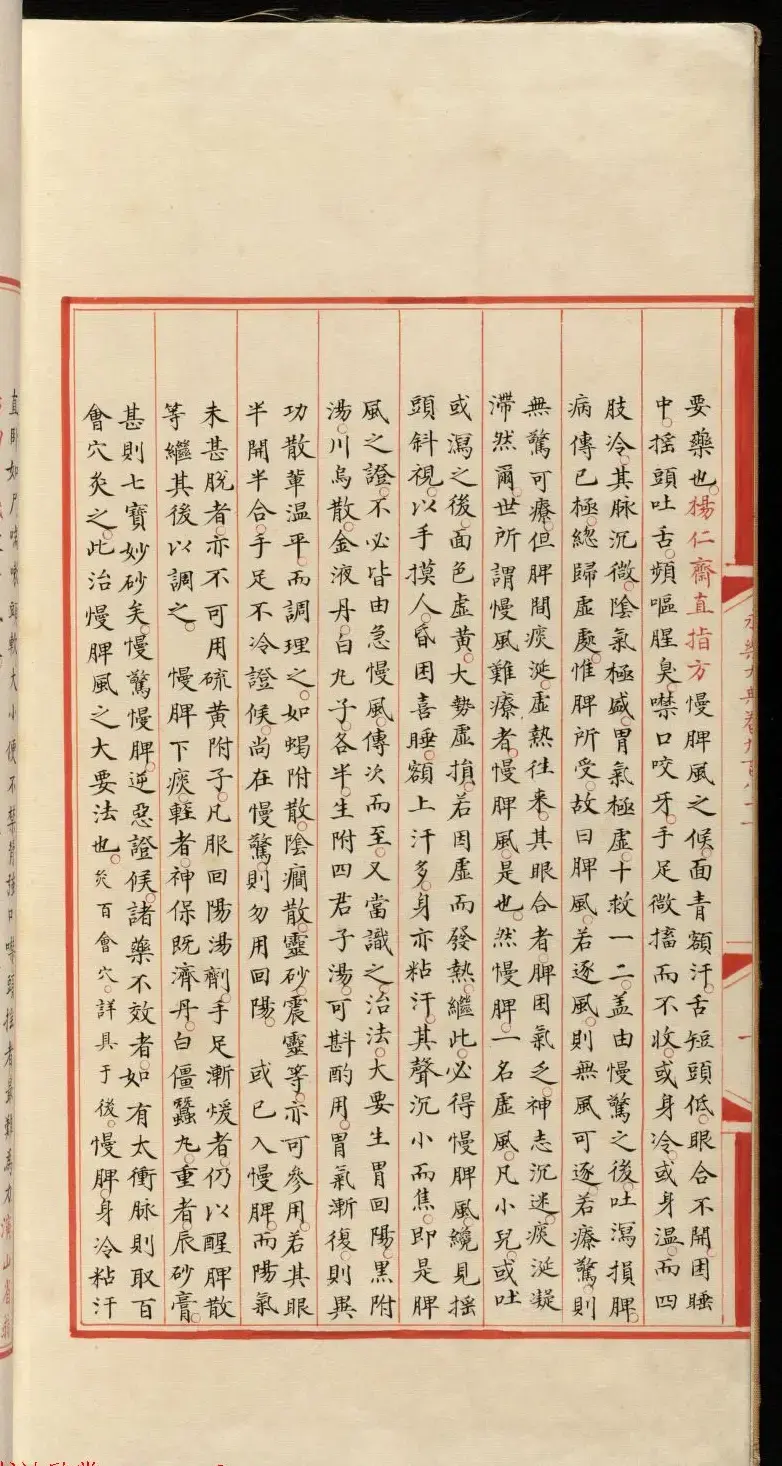 要藥也楊仁齋直指方慢脾風之候面青額汗舌短頭低眼合不開困睡
中搖頭吐舌頻嘔腥臭噤口咬牙手足微搐而不收或身冷或身溫而四
肢冷其脉沉微陰氣極盛胃氣極虛十救一二盖由慢驚之後吐瀉損脾
病傳已極緫歸虛處惟脾所受故曰脾風若逐風則無風可逐若療驚則
無驚可療但脾間痰涎虛熱往來其眼合者脾困氣乏神志沉迷痰涎凝
滯然爾世所謂慢風難療者慢脾風是也然慢脾一名虛風凡小兒或吐
或瀉之後面色虛黃大勢虛損若因虛而發熱繼此必得慢脾風纔見搖
頭斜視以手摸人昏困喜睡額上汗多身亦粘汗其聲沉小而焦即是脾
風之證不必皆由急慢風傳次而至又當識之治法大要生胃回陽黑附
湯川烏散金液丹白丸子各半生附四君子湯可斟酌用胃氣漸復則異
功散軰溫平而調理之如蝎附散陰癎散靈砂震靈等亦可參用若其眼
半開半合手足不冷證候尚在慢驚則勿用回陽 或已入慢脾而陽氣
未甚脫者亦不可用硫黃附子凡服回陽湯劑手足漸煖者仍以醒脾散
等繼其後以調之 慢脾下痰輕者神保既濟丹白僵蠶丸重者辰砂膏
甚則七寶妙砂矣慢驚慢脾逆惡證候諸藥不效者如有太衝脉則取百
會穴炙之此治慢脾風之大要法也炙百會穴詳具于後慢脾身冷粘汗
永樂大典卷九百八十一
一